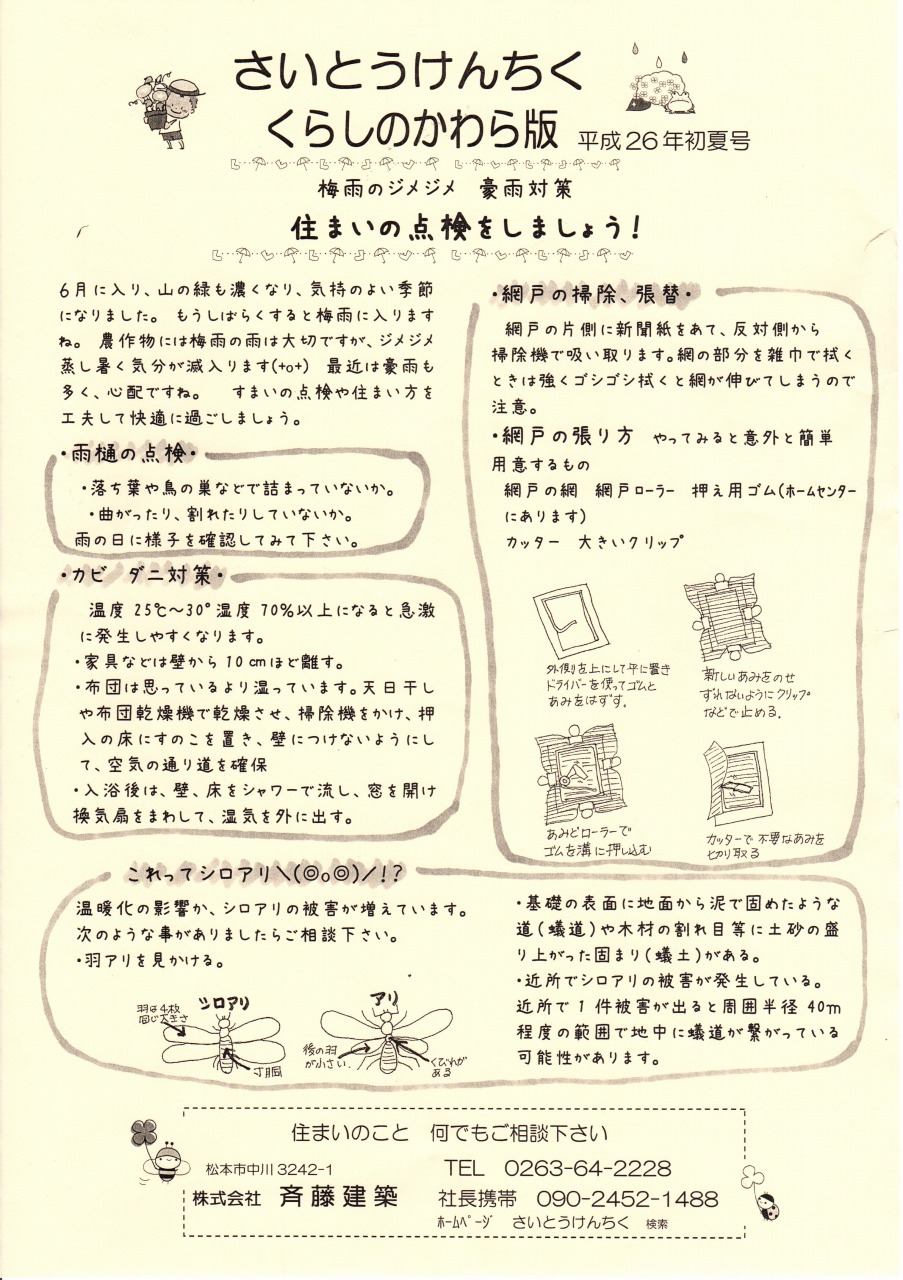 さいとうけんちく
くらしのかわら版 平成26年初夏号
梅雨のジメジメ 豪雨対策
住まいの点検をしましょう!
6月に入り、山の緑も濃くなり、気持のよい季節
になりました。 もうしばらくすると梅雨に入ります
ね。 農作物には梅雨の雨は大切ですが、ジメジメ
蒸し暑く気分が滅入ります(+o+) 最近は豪雨も
多く、心配ですね。 すまいの点検や住まい方を
工夫して快適に過ごしましょう。
・雨樋の点検・
・落ち葉や鳥の巣などで詰まっていないか。
・曲がったり、割れたりしていないか。
雨の日に様子を確認してみて下さい。
・カビ ダニ対策・
温度25℃~30°湿度70%以上になると急激
に発生しやすくなります。
・家具などは壁から10cmほど離す。
・布団は思っているより湿っています。天日干し
や布団乾燥機で乾燥させ、掃除機をかけ、押
入の床にすのこを置き、壁につけないようにし
て、空気の通り道を確保
・入浴後は、壁、床をシャワーで流し、窓を開け
換気扇をまわして、湿気を外に出す。
・網戸の掃除、張替・
網戸の片側に新聞紙をあて、反対側から
掃除機で吸い取ります。網の部分を雑巾で拭く
ときは強くゴシゴシ拭くと網が伸びてしまうので
注意。
・網戸の張り方 やってみると意外と簡単
用意するもの
網戸の網 網戸ローラー 押え用ゴム(ホームセンター
にあります)
カッター 大きいクリップ
外側を上にして平に置き
ドライバーを使ってゴムと
あみをはずす。
新しいあみをのせ
ずれないようにクリップ
などで止める。
あみどローラーで
ゴムを溝に押し込む
カッターで不要なあみを
切り取る
これってシロアリ\(◎o◎)/!?
温暖化の影響か、シロアリの被害が増えています。
次のような事がありましたらご相談下さい。
・羽アリを見かける。
シロアリ
羽は4枚
同じ大きさ
寸胴
アリ
後の羽
が小さい.
くびれが
ある
・基礎の表面に地面から泥で固めたような
道(蟻道)や木材の割れ目等に土砂の盛
り上がった固まり(蟻土)がある。
・近所でシロアリの被害が発生している。
近所で1件被害が出ると周囲半径40m
程度の範囲で地中に蟻道が繋がっている
可能性があります。
住まいのこと 何でもご相談下さい
松本市中川3242-1 TEL 0263-64-2228
株式会社 斉藤建築 社長携帯 090-2452-1488
ホームページ さいとうけんちく 検索